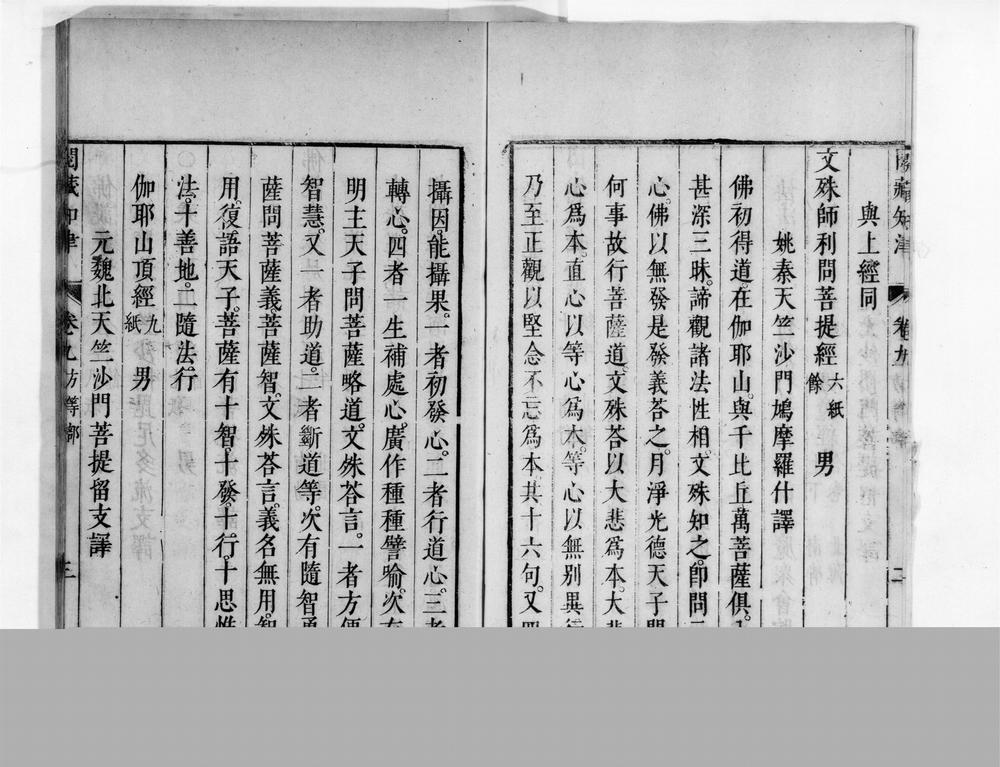 閱藏知津 卷九 方等部 二
與上經同
文殊師利問菩提經 六紙餘 男
姚秦天竺沙門鳩摩羅什譯
佛初得道。在伽耶山。與千比丘萬菩薩俱。
甚深三昧。諦觀諸法性相。文殊知之。即問
心。佛以無發是發義荅之。月淨光德天子
何事故行菩薩道。文殊荅以大悲爲本。大
心爲本。直心以等心爲本。等心以無别異行
乃至正觀以堅念不忘爲本。共十六句。又四
攝因。能攝果。一者初發心。二者行道心。三者
轉心。四者一生補處心。廣作種種譬喻。次
明主天子問菩薩略道。文殊荅言。一者方便
智慧。又一者助道。二者斷道等。次有隨智勇
薩問菩薩義。菩薩智。文殊荅言。義名無用。智
用。復語天子。菩薩有十智。十發。十行。十思惟
法。十善地。二隨法行
伽耶山頂經 九紙 男
元魏北天竺沙門菩提留支譯
閱藏知津 卷九 方等部 三